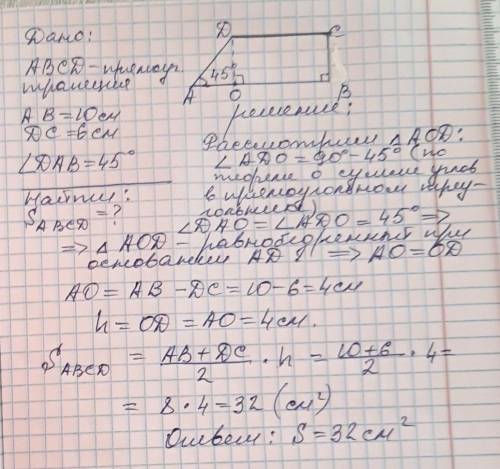 Дано:
ABCD - прямоуг.
трапеция
AB = 10 см
DC = 6 см
∠DAB = 45°
Найти:
S ABCD = ?
D C
45°
A O B
решение:
Рассмотрим △AOD:
∠ADO = 90° - 45° (по
теореме о сумме углов
в прямоугольном треу-
гольнике)
∠DAO = ∠ADO = 45° =>
=> △AOD - равнобедренный при
основании AD => AO = OD
AO = AB - DC = 10 - 6 = 4 см
h = OD = AO = 4 см.
S ABCD = (AB + DC)/2 · h = (10 + 6)/2 · 4 =
= 8 · 4 = 32 (см²)
Ответ: S = 32 см²